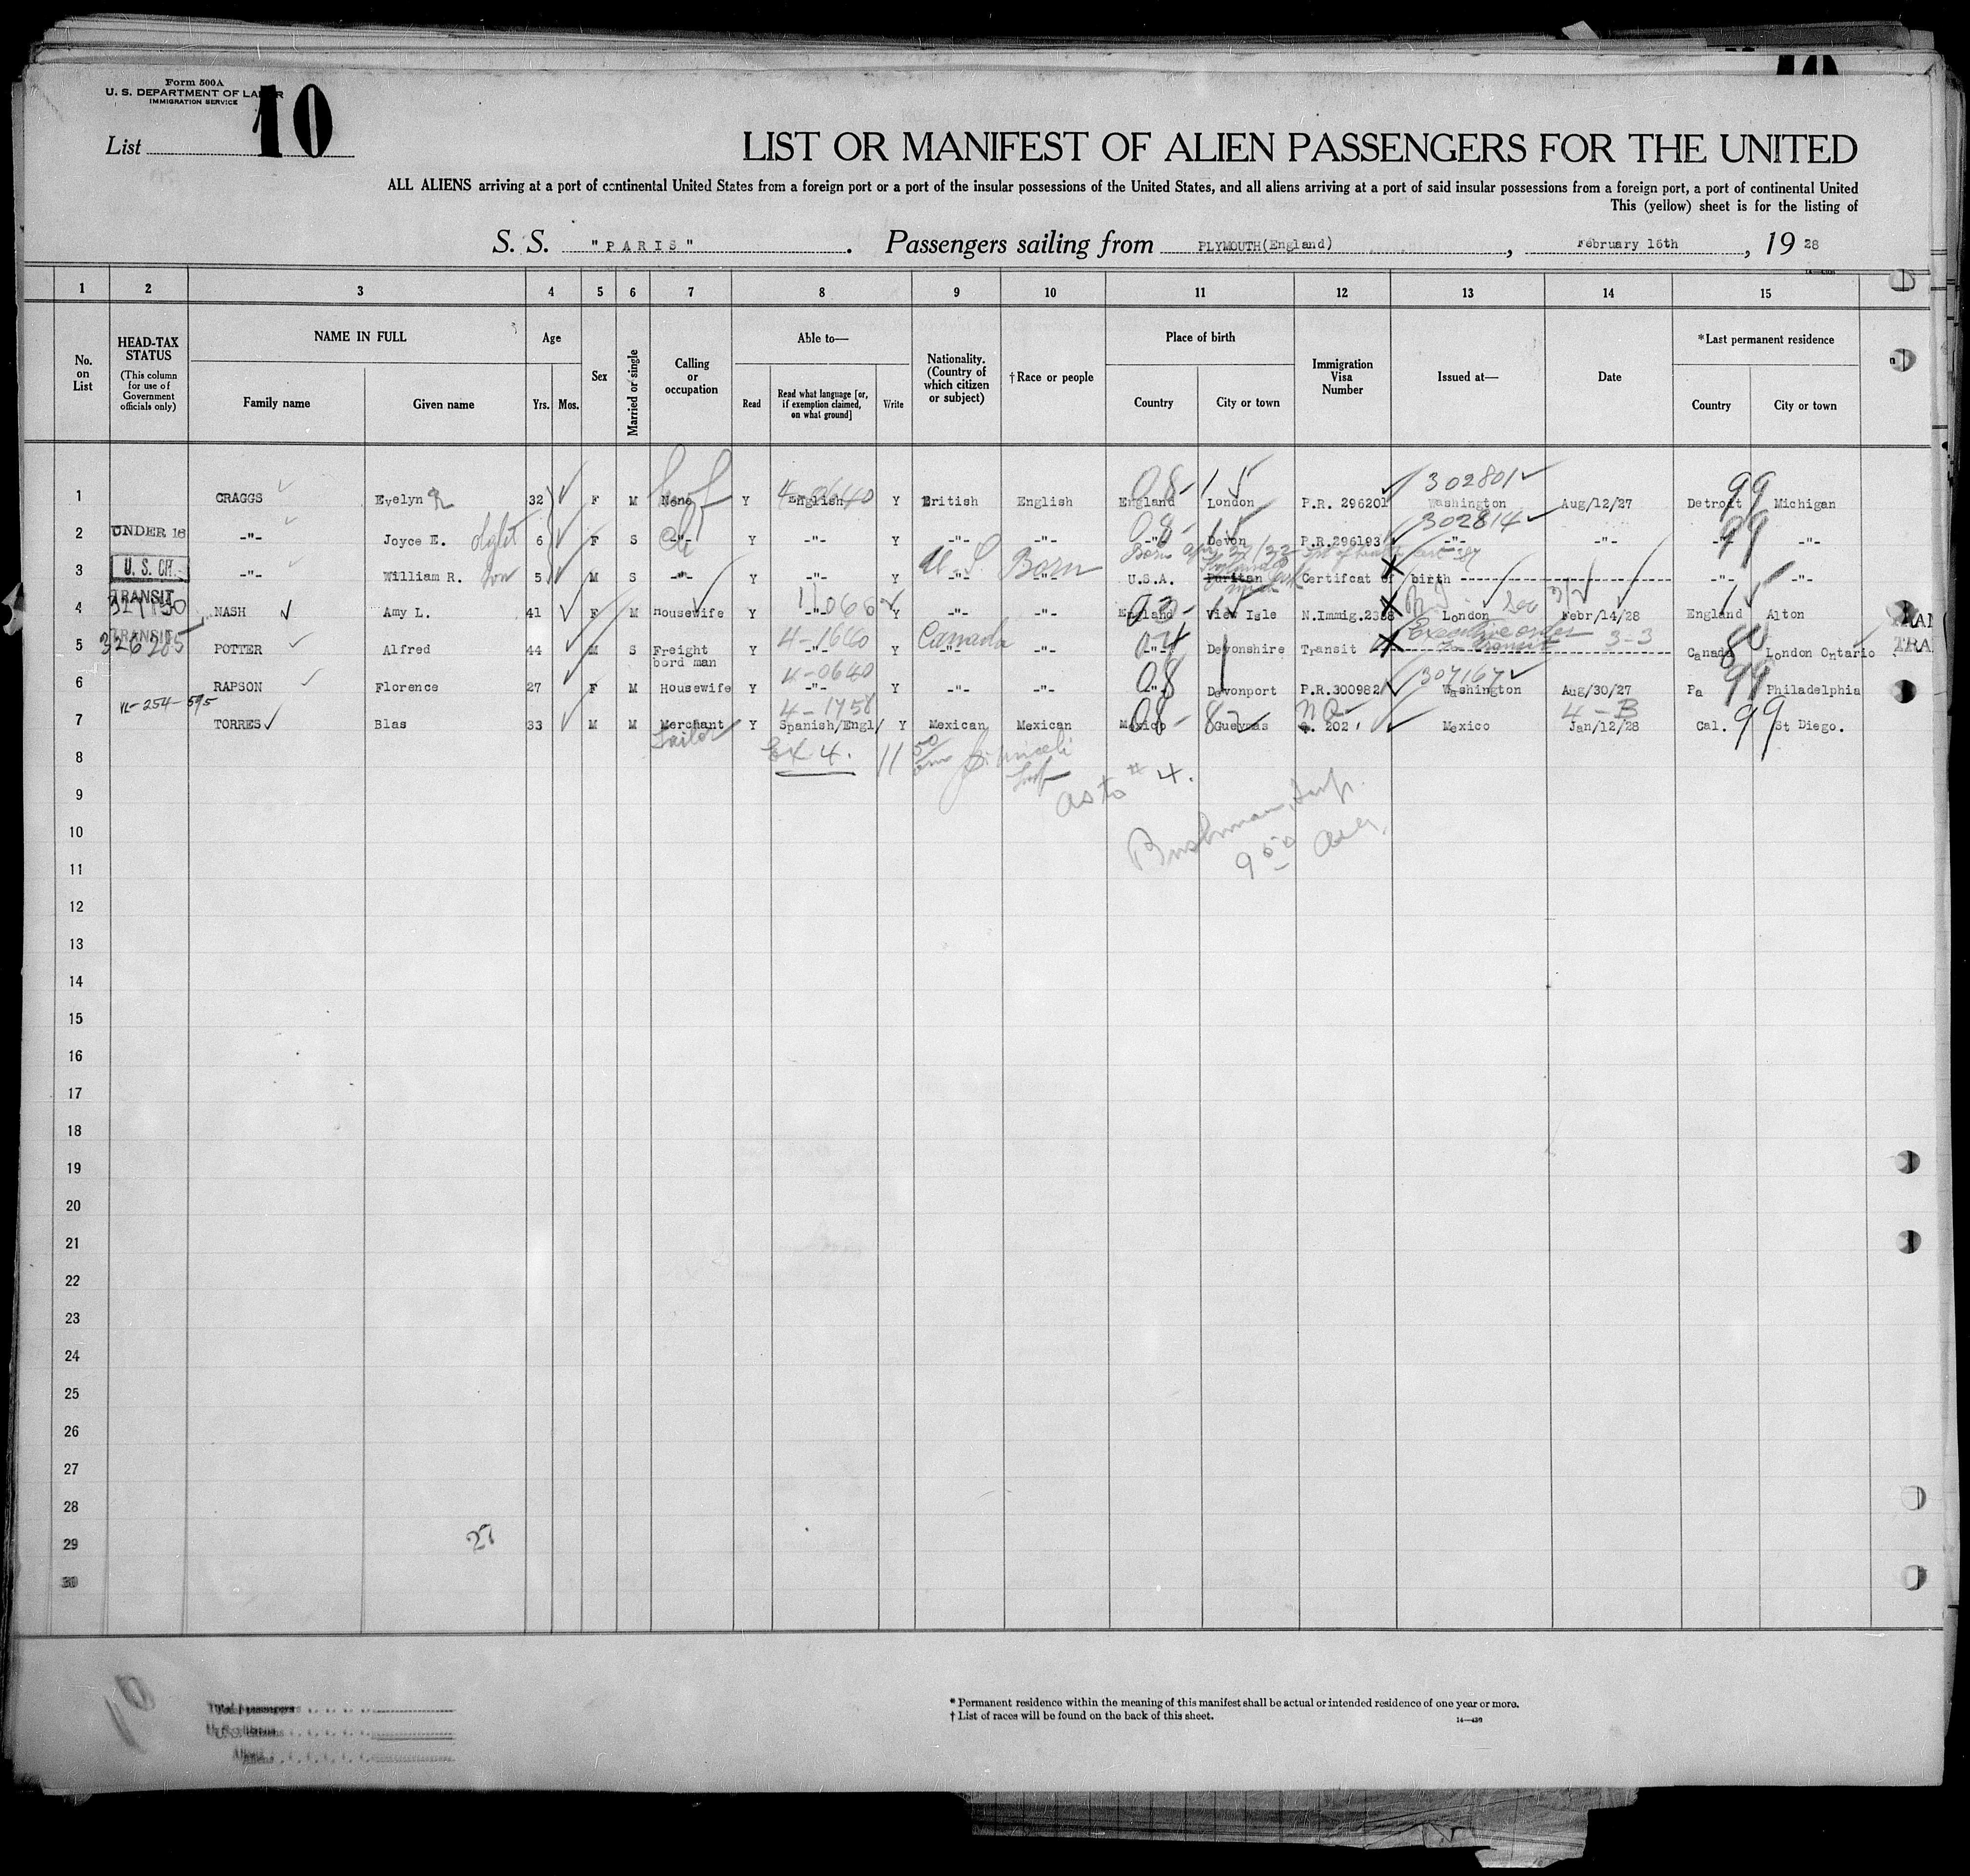 Form 500A
U. S. DEPARTMENT OF LABOR
IMMIGRATION SERVICE
List 10
LIST OR MANIFEST OF ALIEN PASSENGERS FOR THE UNITED
ALL ALIENS arriving at a port of continental United States from a foreign port or a port of the insular possessions of the United States, and all aliens arriving at a port of said insular possessions from a foreign port, a port of continental United
This (yellow) sheet is for the listing of
S. S. "PARIS". Passengers sailing from PLYMOUTH(England), February 16th, 19 28
1 2 3 4 5 6 7 8 9 10 11 12 13 14 15
No. on List
HEAD-TAX STATUS
(This column for use of Government officials only)
NAME IN FULL
Family name Given name
Age
Yrs. Mos.
Sex
Married or single
Calling or occupation
Able to—
Read Read what language [or, if exemption claimed, on what ground] Write
Nationality. (Country of which citizen or subject)
†Race or people
Place of birth
Country City or town
Immigration Visa Number
Issued at—
Date
*Last permanent residence
Country City or town
302801
1 CRAGGS Evelyn 32 F M None Y English Y British English England London P.R. 296201 Washington Aug/12/27 Detroit 99 Michigan
302814
2 UNDER 16 -"- Joyce E. 6 F S -"- Y -"- Y -"- -"- -"- Devon P.R.296193 -"- -"- -"- 99 -"-
3 U. S. CIT. -"- William R. son 5 M S -"- Y -"- Y -"- U. S. Born -"- U.S.A. Puritan Certifcat of birth -"- -"-
TRANSIT
4 NASH Amy L. 41 F M housewife Y -"- Y -"- -"- England View Isle N.Immig.2388 London Febr/14/28 England Alton
TRANSIT
4-1660 Canada Executive order 3-3
5 326285 POTTER Alfred 44 M S Freight bord man Y -"- Y -"- -"- -"- Devonshire Transit Canada London Ontario
4-0640 307167
6 RAPSON Florence 27 F M Housewife Y -"- Y -"- -"- -"- Devonport P.R.300982 Washington Aug/30/27 Pa 99 Philadelphia
4-1758 4-B
7 TORRES Blas 33 M M Merchant Y Spanish/Engl/ Y Mexican Mexican Mexico Gueymas 202 Mexico Jan/12/28 Cal. 99 St Diego.
Tailor
8 Ex 4.
9 as to # 4.
10
11
12
13
14
15
16
17
18
19
20
21
22
23
24
25
26
27
28
29
30
* Permanent residence within the meaning of this manifest shall be actual or intended residence of one year or more.
† List of races will be found on the back of this sheet.
14—430